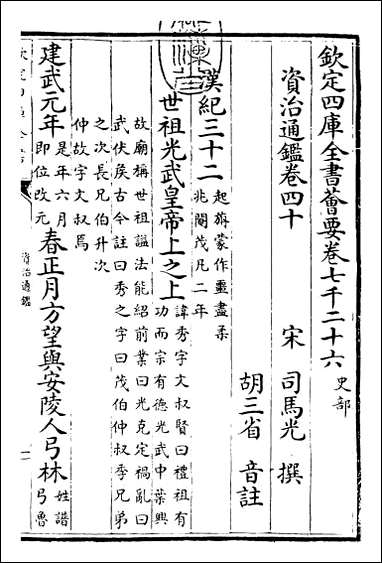 欽定四庫全書薈要卷七千二十六 史部
資治通鑑卷四十
宋 司馬光 撰
胡三省 音註
漢紀三十二 起旃蒙作噩盡柔
兆閹茂凡二年
世祖光武皇帝上之上 諱秀字文叔賢曰禮祖有
功而宗有德光武中葉興
故廟稱世祖諡法能紹前業曰光克定禍亂曰
武伏侯古今註曰秀之字曰茂伯仲叔季兄弟
之次長兄伯升次
仲故字文叔焉
建武元年 是年六月
即位改元 春正月方望與安陵人弓林 姓譜
弓魯
資治通鑑